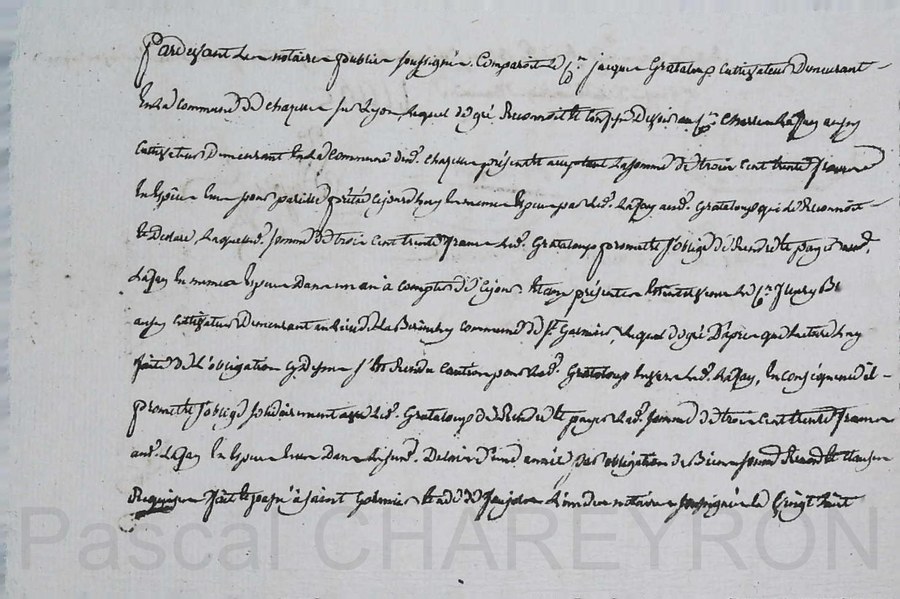 Pardevant le notaire public soussigné. Comparoit le Cn. jacque Grataloup Cultivateur Demeurant
En la commune de chapelle sur Lyon, lequel de gré Reconnoit et Confesse Devoir au Cn. Charles Lafay aussy
Cultivateur Demeurant En la Commune dud. chapelle présent et acceptant La somme de trois Cent trente francs
En Espèce pour pareille prêtée cejourdhuy En meme Espèce par led. Lafay aud. Grataloup qui le Reconnoit
Et Declare, Laquelle d. somme de trois Cent trente francs led. Grataloup promet et s'oblige de Rendre et payer aud.
Lafay En meme Espèce Dans un an à Compter de Cejour. Et au présent est intervenu le Cn.
aussy Cultivateur Demeurant au lieu de La commune de St. Galmier, lequel de gré D'après que lecture Luy
faite de L'obligation Cy dessus s'est Rendu Caution pour led. Grataloup Envers led. Lafay, En Conséquence il
promet et s'oblige solidairement avec led. Grataloup de Rendre et payer lad. somme de trois Cent trente francs
aud. Lafay En Espèce Dans Led. Delai d'une année par obligation de Biens soumis Renon. et Clauses
Requises fait et passé à Saint Galmier Etude de l'un des notaires soussignés le Vingt huit
Pascal CHAREYRON